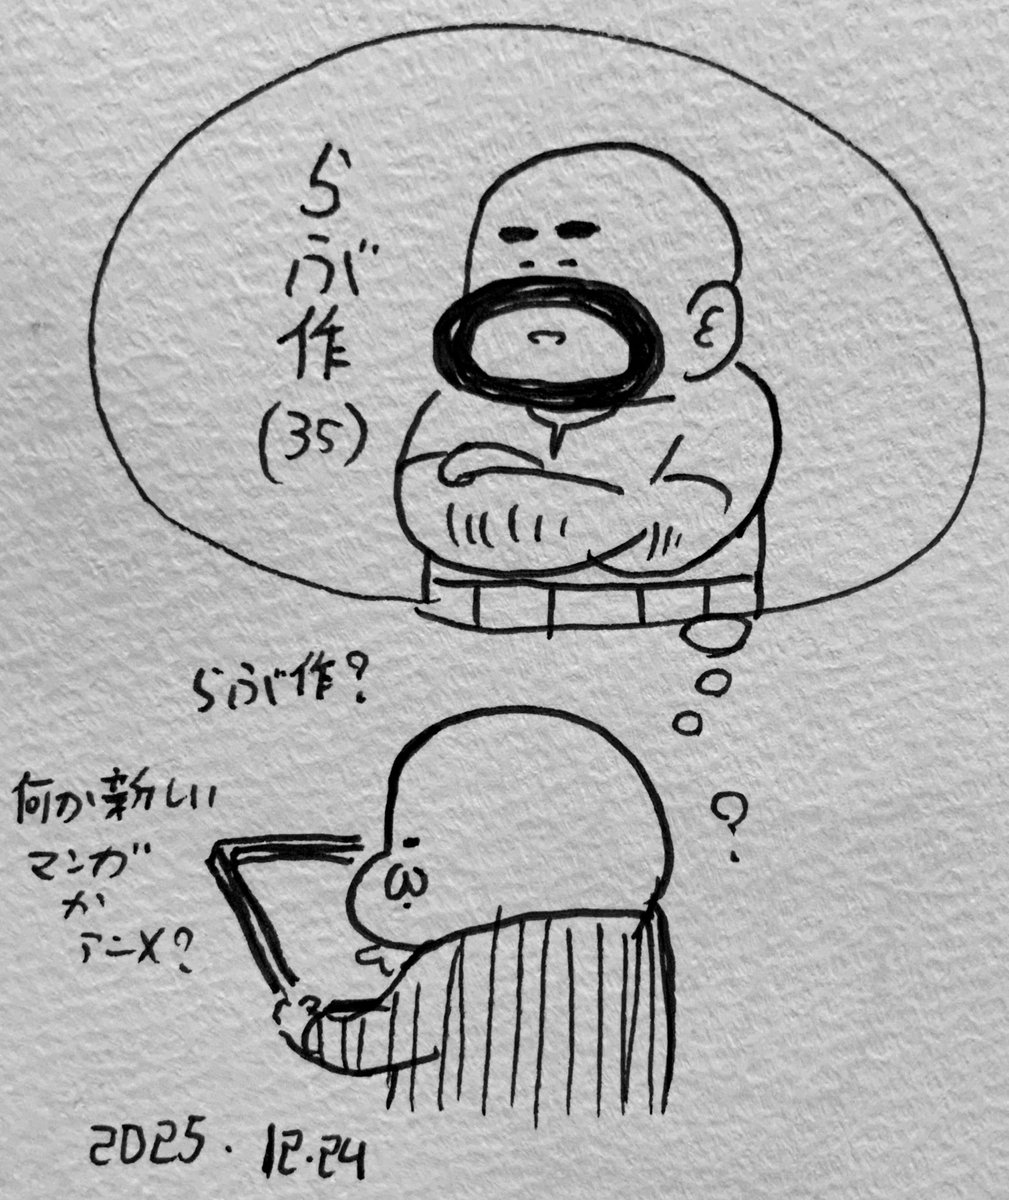 らぶ作
(35)
らぶ作?
何か新しい
マンガ
か
アニメ?
?
2025.12.24